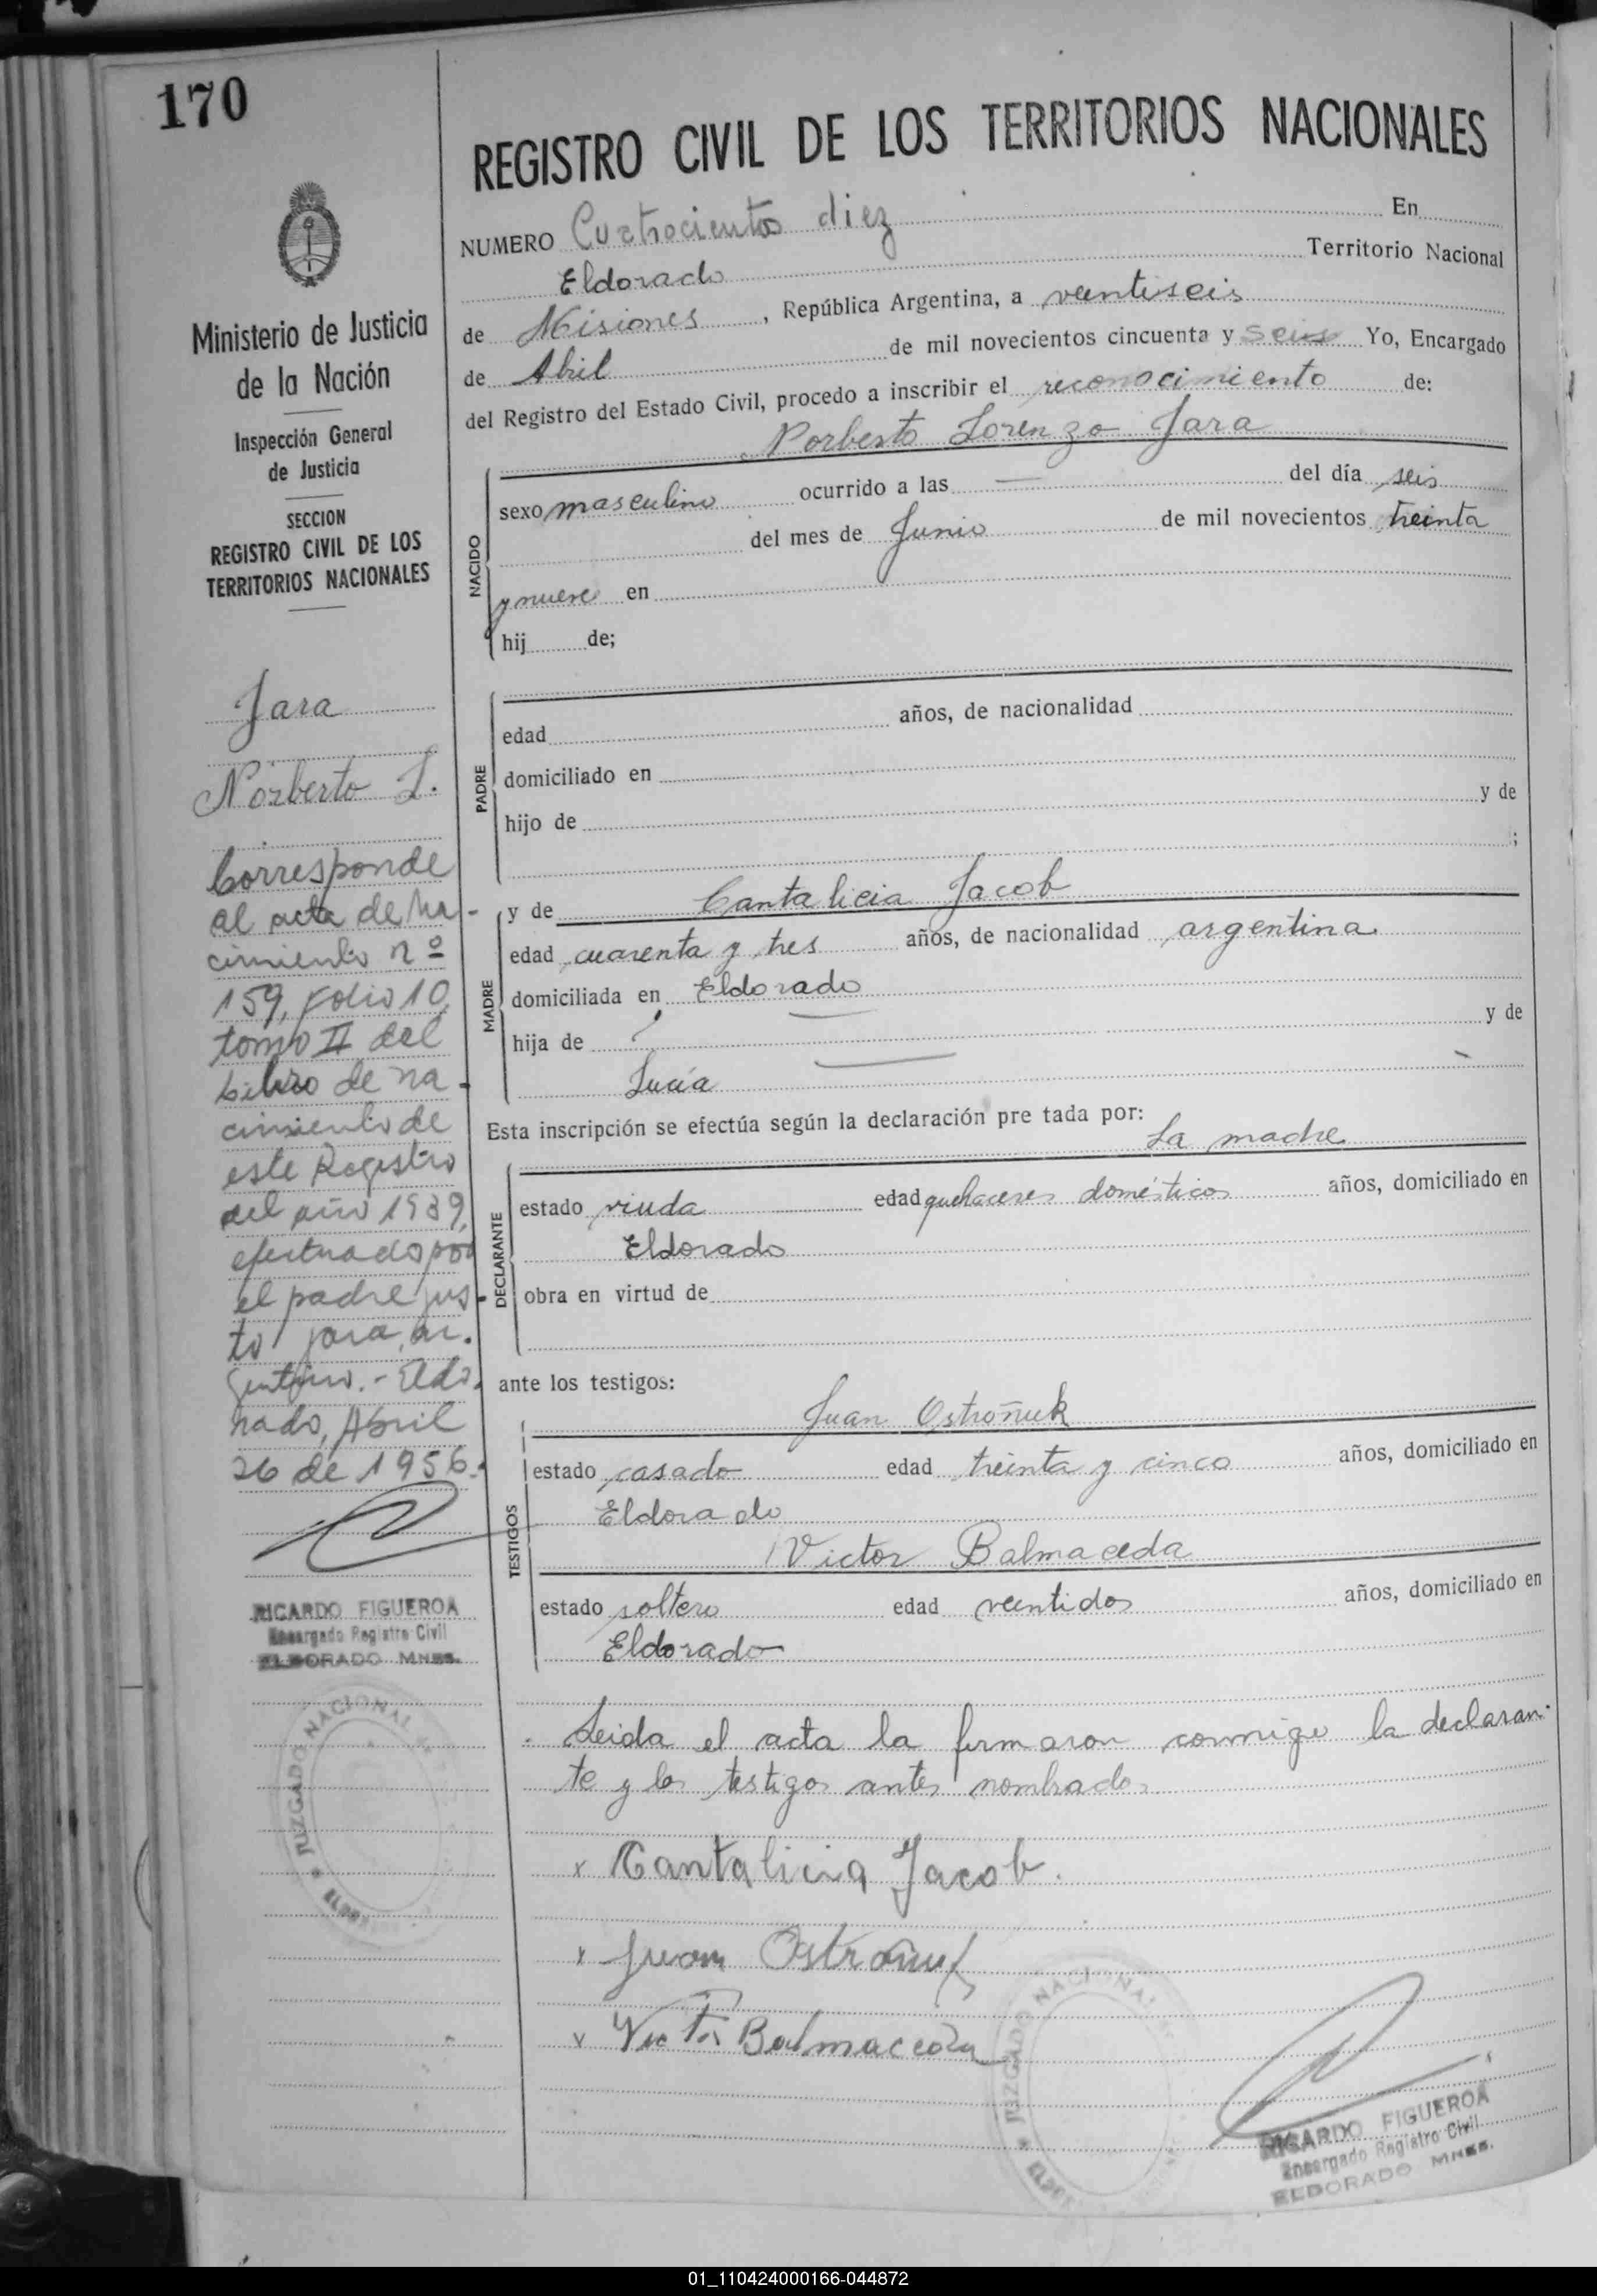 170
REGISTRO CIVIL DE LOS TERRITORIOS NACIONALES
Ministerio de Justicia
de la Nación
Inspección General
de Justicia
SECCION
REGISTRO CIVIL DE LOS
TERRITORIOS NACIONALES
Jara
Norberto L.
Corresponde
al acta de na-
cimiento nº
159, folio 10,
tomo II del
Libro de na-
cimiento de
este Registro
del año 1939,
efectuado por
el padre jus-
to jara, ar-
gentino.- Eldo-
rado, Abril
26 de 1956.
RICARDO FIGUEROA
Encargado Registro Civil
ELDORADO MNES.
JUZGADO NACIONAL
NUMERO Cuatrocientos diez En
Eldorado Territorio Nacional
de Misiones, República Argentina, a veintiseis
de Abril de mil novecientos cincuenta y seis Yo, Encargado
del Registro del Estado Civil, procedo a inscribir el reconocimiento de:
Norberto Lorenzo Jara
NACIDO
sexo masculino ocurrido a las — del día seis
del mes de Junio de mil novecientos treinta
y nueve en
hij de;
PADRE
edad años, de nacionalidad
domiciliado en
hijo de y de
;
MADRE
y de Cantalicia Jacob
edad cuarenta y tres años, de nacionalidad argentina
domiciliada en Eldorado
hija de ? — y de
Lucía —
Esta inscripción se efectúa según la declaración pre tada por:
La madre
DECLARANTE
estado viuda edad quehaceres domésticos años, domiciliado en
Eldorado
obra en virtud de
ante los testigos:
TESTIGOS
Juan Ostroñuk
estado casado edad treinta y cinco años, domiciliado en
Eldorado
Victor Balmaceda
estado soltero edad veintidos años, domiciliado en
Eldorado
Leida el acta la firmaron conmigo la declaran-
te y los testigos antes nombrados.
x Cantalicia Jacob.
x Juan Ostroñuk
x Victor Balmaceda
JUZGADO NACIONAL
RICARDO FIGUEROA
Encargado Registro Civil
ELDORADO MNES.
01_110424000166-044872